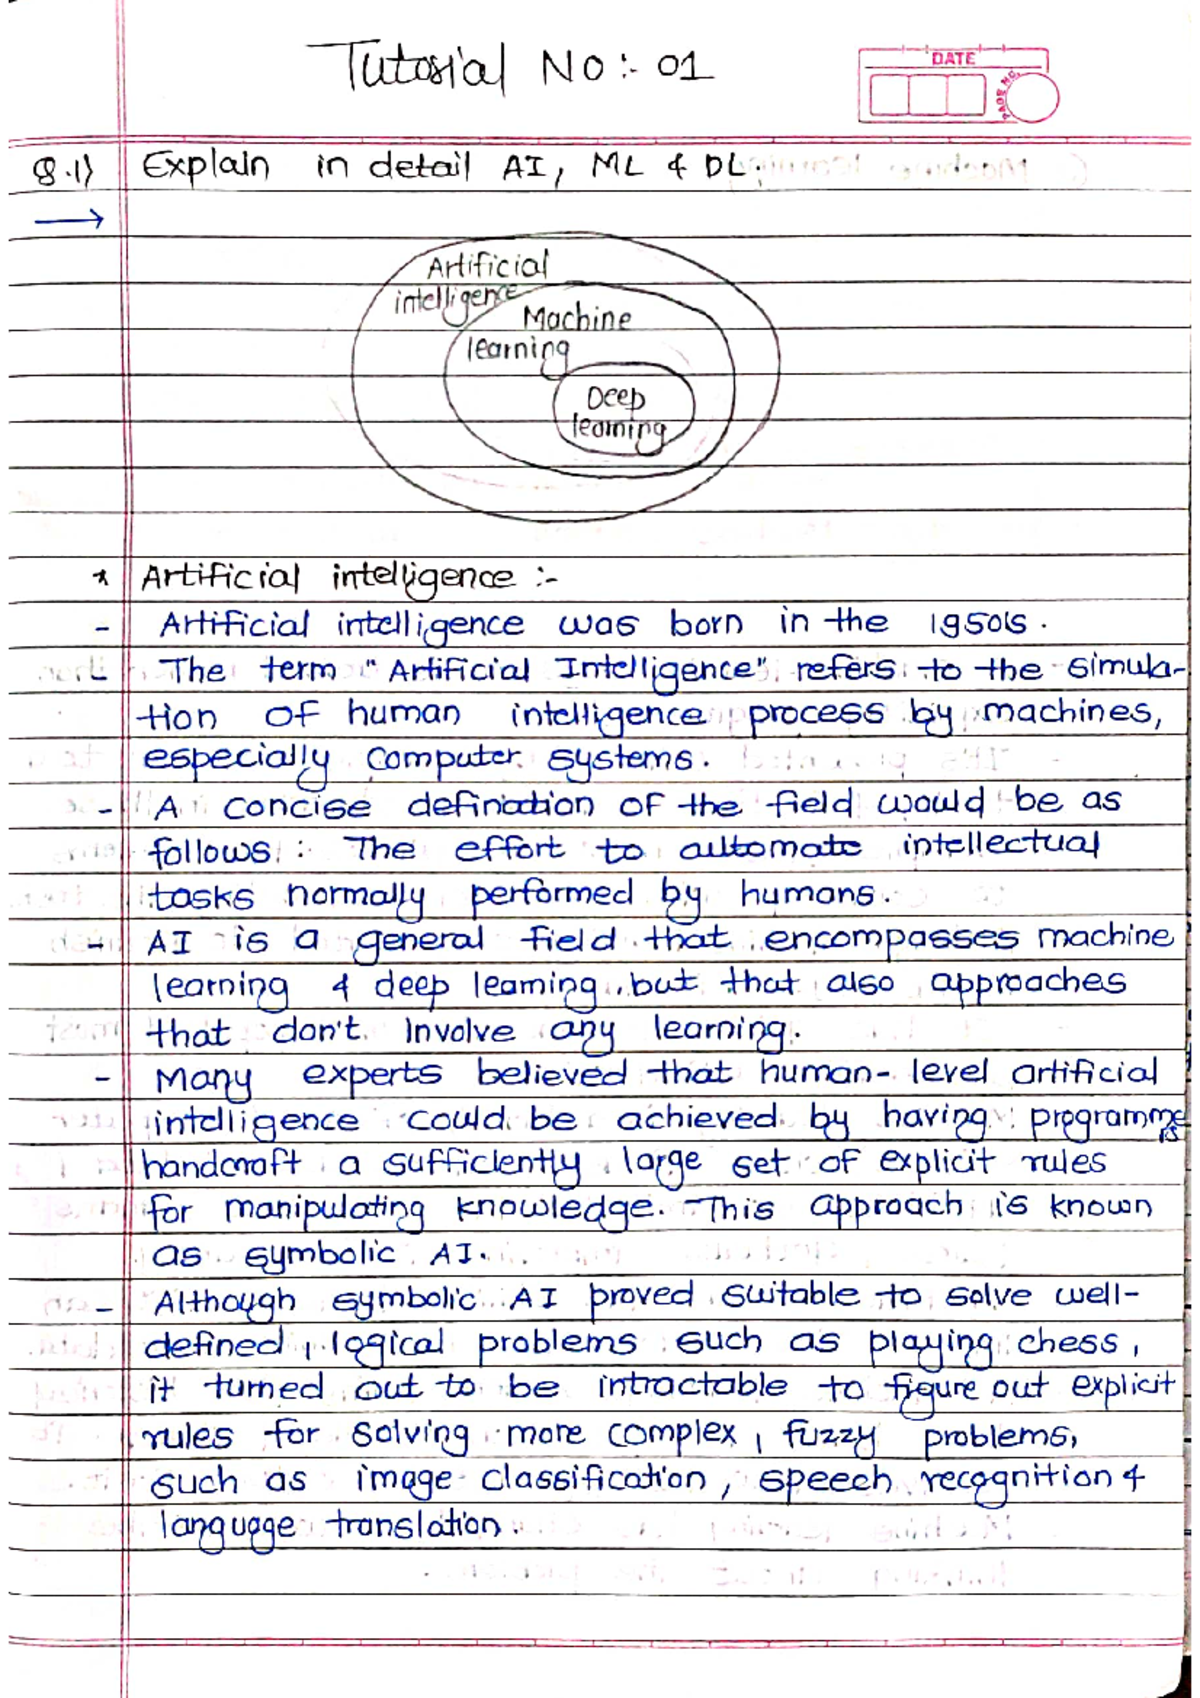 Tutorial No:- 01
DATE
PAGE NO.
Q.1) Explain in detail AI, ML & DL.
→
Artificial
intelligence
Machine
learning
Deep
learning
* Artificial intelligence :-
- Artificial intelligence was born in the 1950's.
- The term "Artificial Intelligence" refers to the simula-
tion of human intelligence process by machines,
especially computer systems.
- A concise defination of the field would be as
follows : The effort to automate intellectual
tasks normally performed by humans.
- AI is a general field that encompasses machine
learning & deep learning, but that also approaches
that don't involve any learning.
- Many experts believed that human-level artificial
intelligence could be achieved by having programmers
handcraft a sufficiently large set of explicit rules
for manipulating knowledge. This approach is known
as symbolic AI.
- Although symbolic AI proved suitable to solve well-
defined, logical problems such as playing chess,
it turned out to be intractable to figure out explicit
rules for solving more complex, fuzzy problems,
such as image classification, speech recognition &
language translation.